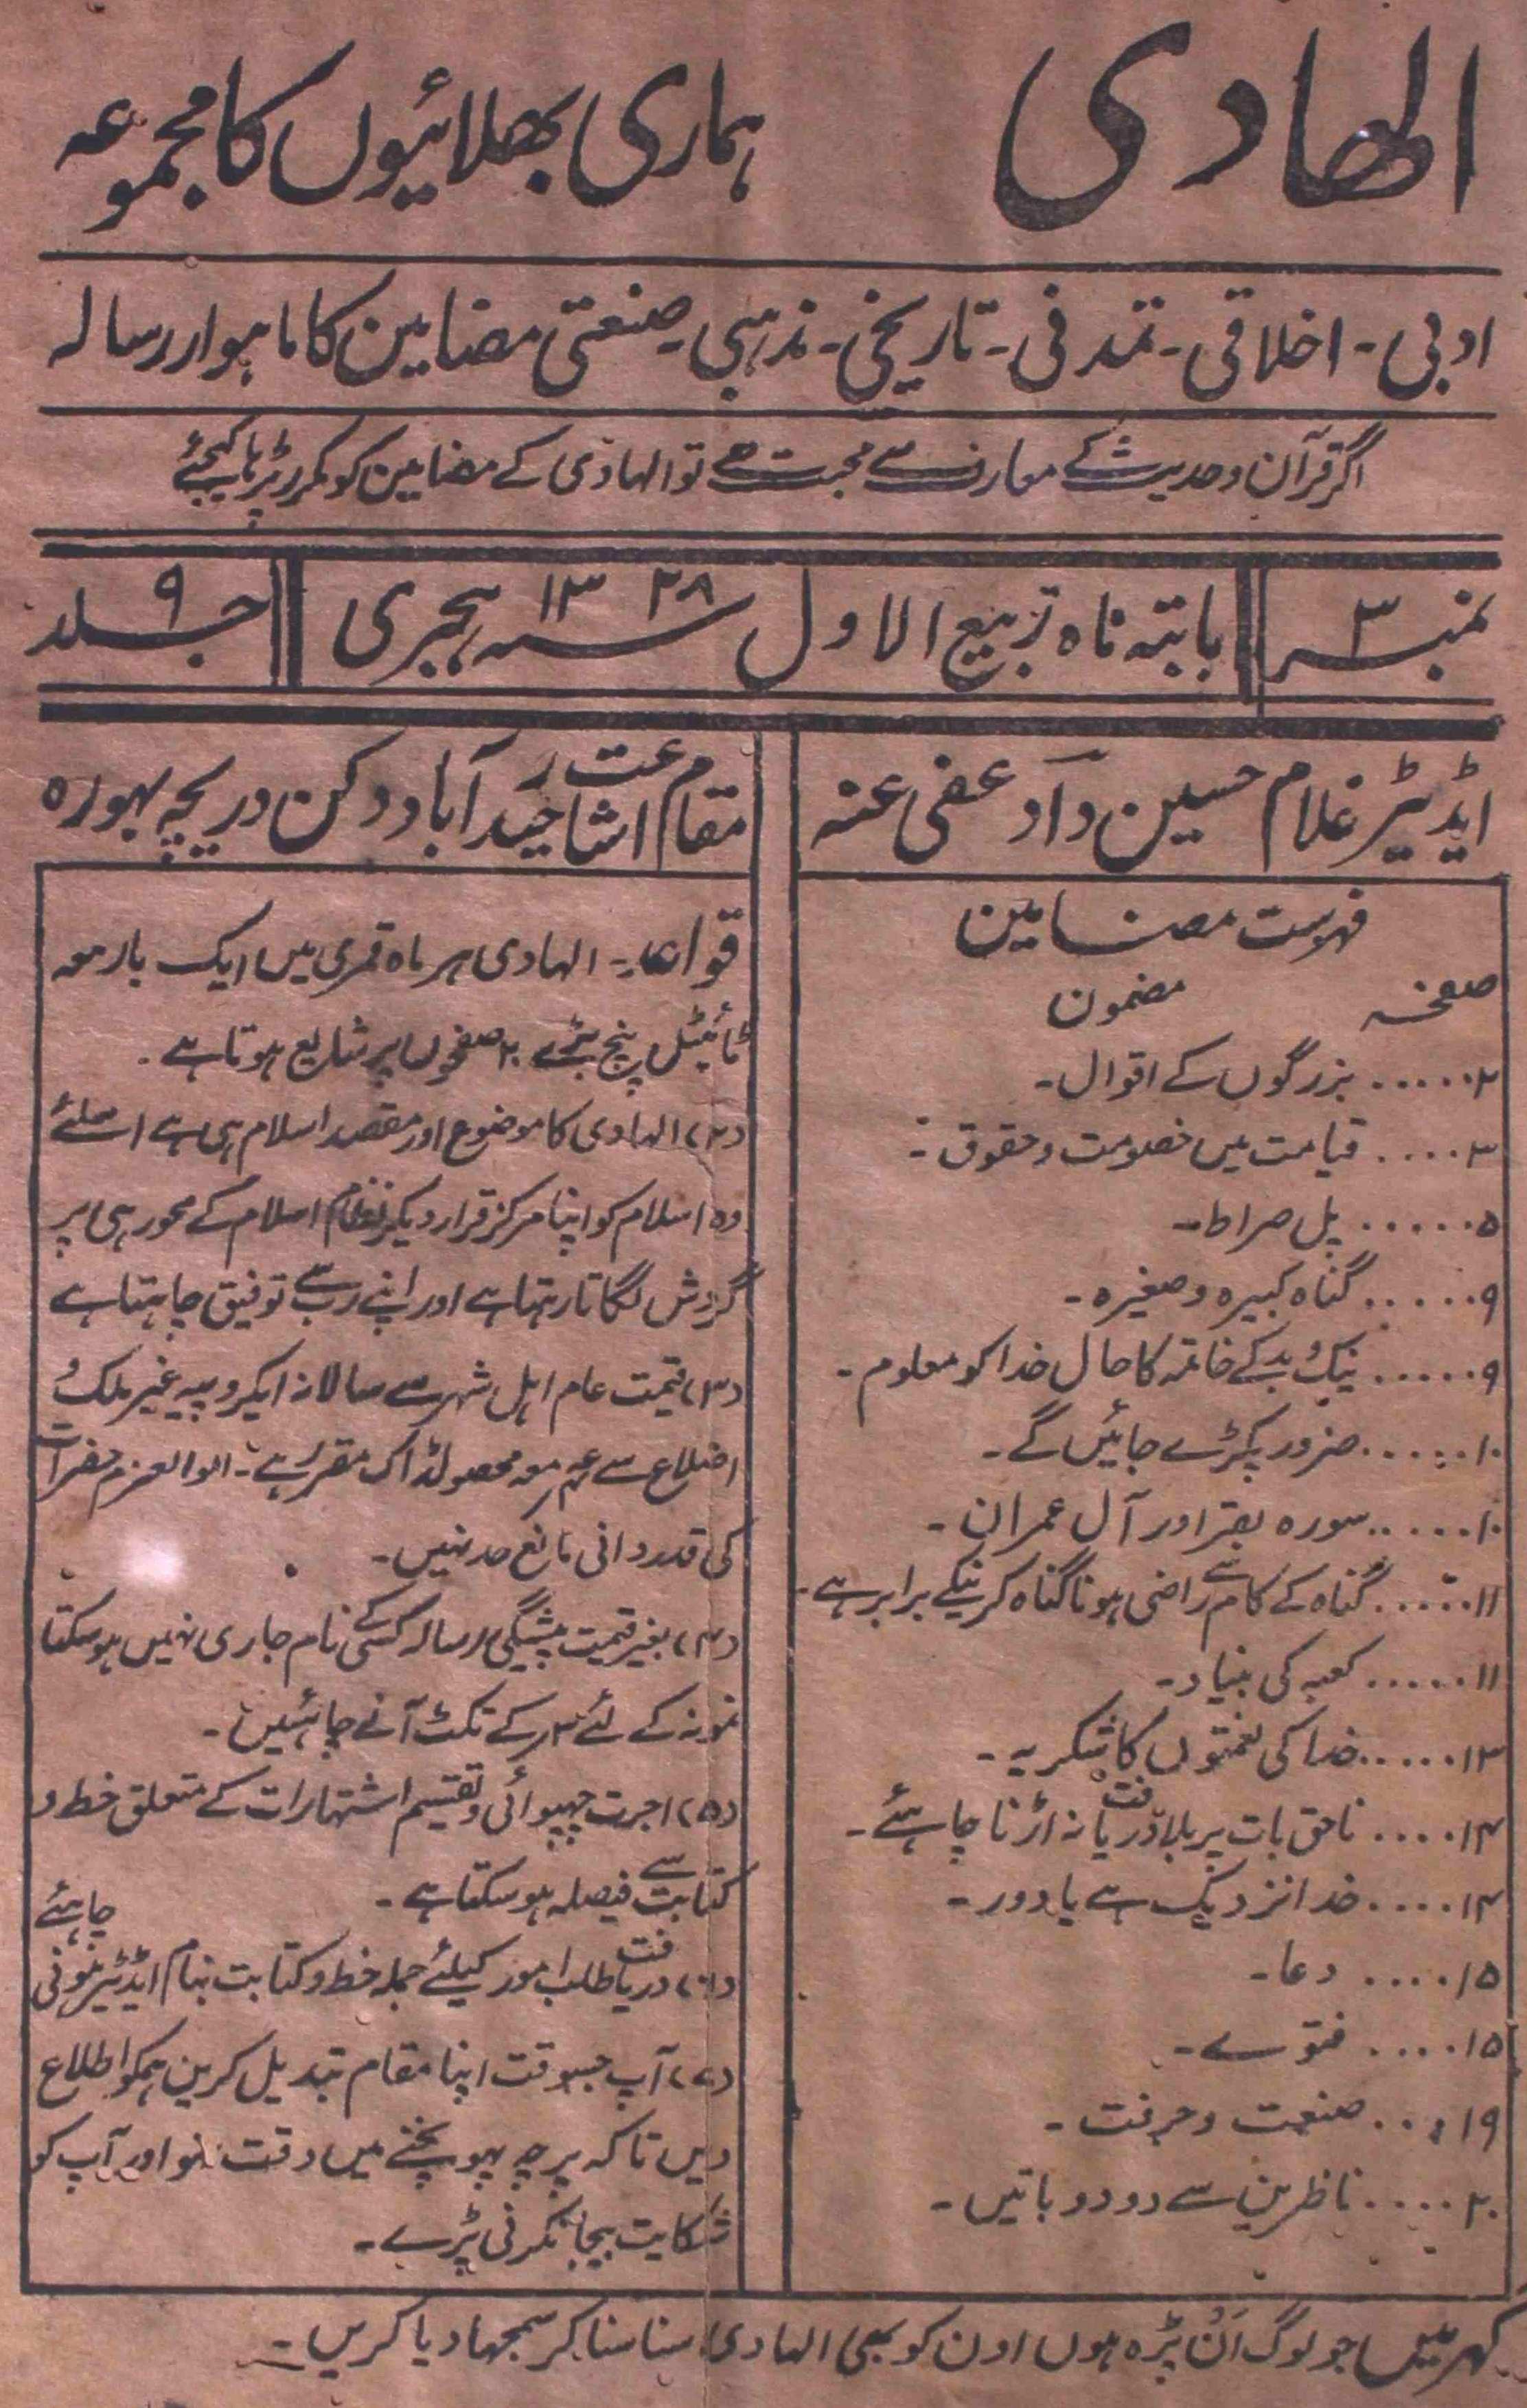 الھادی
ہماری بھلائیوں کا مجموعہ
ادبی ۔ اخلاقی ۔ تمدنی ۔ تاریخی ۔ مذہبی ۔ صنعتی مضامین کا ماہوار رسالہ
اگر قرآن و حدیث کے معارف سے محبت ہے تو الہادی کے مضامین کو مکرر پڑہا کیجئے
نمبر ۳
بابتہ ماہ ربیع الاول سنہ ۱۳۲۸ ہجری
جلد ۹
ایڈیٹر غلام حسین داؔد عفی عنہ
فہرست مضامین
صفحہ مضمون
۲ ..... بزرگوں کے اقوال۔
۳ .... قیامت میں خصومت و حقوق ۔
۵ ..... پل صراط۔
۹ ..... گناہ کبیرہ و صغیرہ ۔
۹ ..... نیک و بد کے خاتمہ کا حال خدا کو معلوم ۔
۱۰ ..... ضرور پکڑے جائیں گے ۔
۱۰ ..... سورہ بقر اور آل عمران ۔
۱۱ ..... گناہ کے کام سے راضی ہونا گناہ کرنیکے برابر ہے ۔
۱۱ ..... کعبہ کی بنیاد ۔
۱۳ ..... خدا کی نعمتوں کا شکریہ ۔
۱۴ .... ناحق بات پر بلا دریافت نہ اڑنا چاہئے ۔
۱۴ .... خدا نزدیک ہے یا دور ۔
۱۵ .... دعا ۔
۱۵ .... فتوے ۔
۱۹ ... صنعت و حرفت ۔
۲۰ .... ناظرین سے دو دو باتیں ۔
مقام اشاعت حیدرآباد دکن دریچہ بہورہ
قواعد ۔ الہادی ہر ماہ قمری میں ایک بار معہ
ٹائیٹل پیج بڑے ۲۰ صفحوں پر شایع ہوتا ہے ۔
(۲) الہادی کا موضوع اور مقصد اسلام ہی ہے اسلئے
وہ اسلام کو اپنا مرکز قرار دیکر نظام اسلام کے محور ہی پر
گردش لگاتا رہتا ہے اور اپنے رب سے توفیق چاہتا ہے
(۳) قیمت عام اہل شہر سے سالانہ ایکروپیہ غیر ملک و
اضلاع سے معہ محصولڈاک مقرر ہے ۔ الوالعزم حضرات
کی قدردانی مانع حد نہیں ۔
(۴) بغیر قیمت پیشگی رسالہ کسی کے نام جاری نہیں ہوسکتا
نمونہ کے لئے ۳ر کے ٹکٹ آنے چاہئیں ۔
(۵) اجرت چھپوائی و تقسیم اشتہارات کے متعلق خط و
کتابت سے فیصلہ ہوسکتا ہے ۔
(۶) دریافت طلب امور کیلئے جملہ خط و کتابت بنام ایڈیٹر ہونی چاہئے
(۷) آپ جسوقت اپنا مقام تبدیل کریں ہمکو اطلاع
دیں تاکہ پرچہ پہونچنے میں دقت نہو اور آپ کو
شکایت بیجا نکرنی پڑے ۔
گھر میں جو لوگ اَن پڑہ ہوں اون کو بھی الہادی سنا سنا کر سمجھا دیا کریں ۔